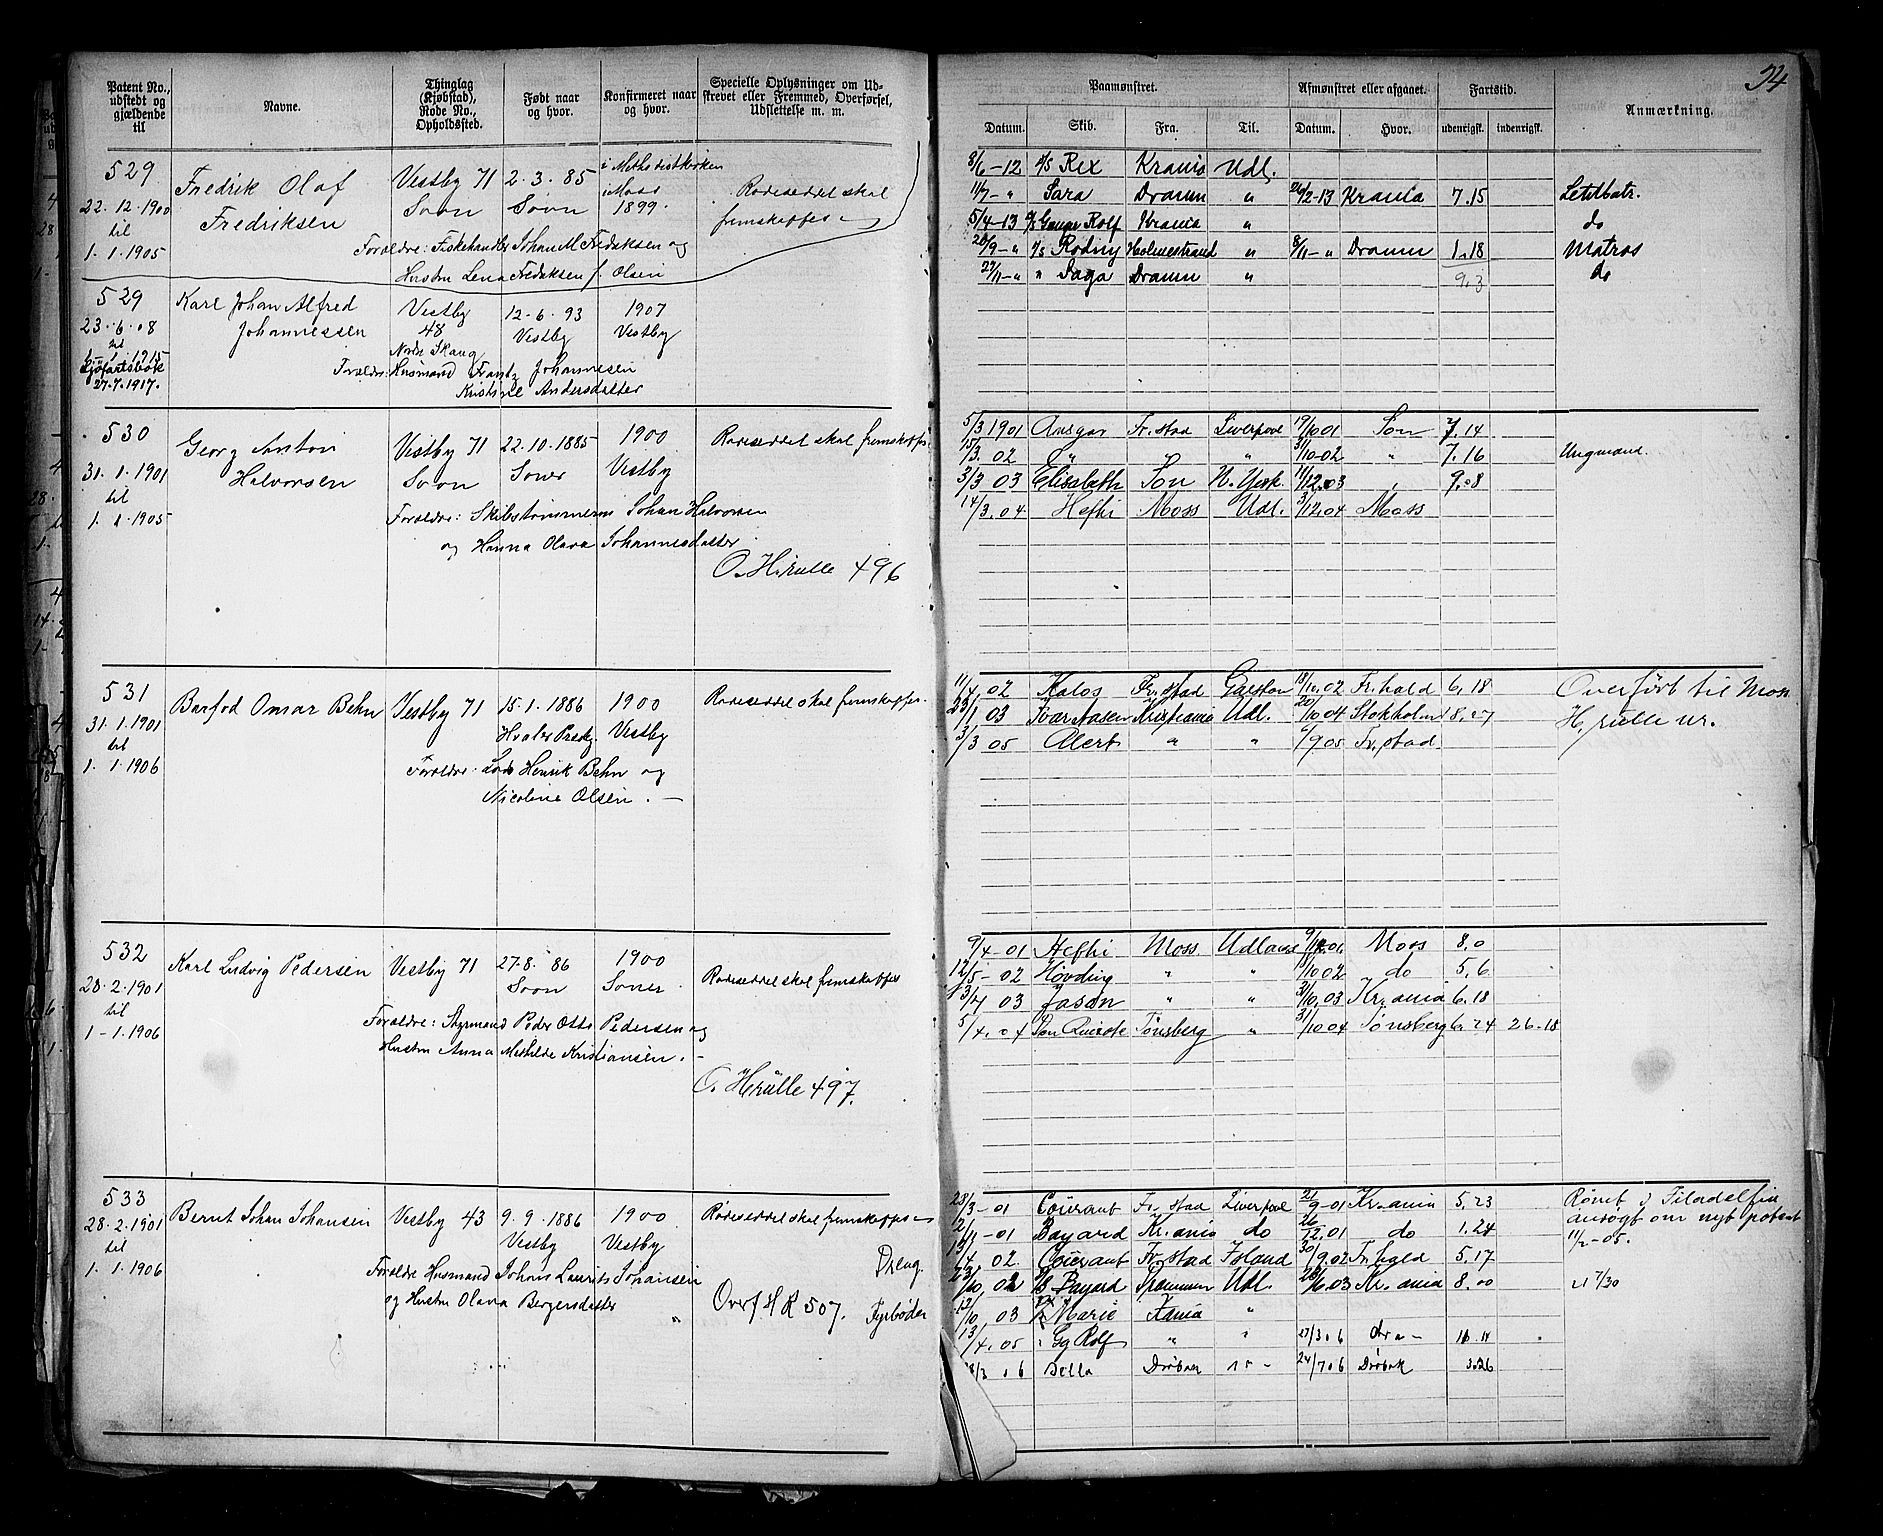 Patent No., udstedt og gjældende til
Navne.
Thinglag (Kjøbstad), Rode No., Opholdssted.
Født naar og hvor.
Konfirmeret naar og hvor.
Specielle Oplysninger om Udskrevet eller Fremmed, Overførsel, Udslettelse m. m.
529
22.12.1900
til
1.1.1905
Fredrik Olaf
Fredriksen
Vestby 71
Soon
2.3.85
Soon
i Methodistkirken
i Moss
1899.
Rodeseddel skal
fremskaffes
Forældre: Fiskehandler Johan M. Fredriksen og
Hustru Lena Fredriksen f. Olsen
529
23.6.08
til
1.1.1915
Sjøfartsbok
27.7.1917.
Karl Johan Alfred
Johannessen
Vestby
48
Nordre Skaug
12-6.93
Vestby
1907
Vestby
Forældre: Husmand Frantz Johannesen
Kristine Andersdatter
530
31.1.1901
til
1.1.1905
Georg Anton
Halvorsen
Vestby 71
Soon
22.10.1885
Soner
1900
Vestby
Rodeseddel skal fremskaffes
Forældre: Skibstømmerm Johan Halvorsen
og Hanna Olava Johannesdatter
O. H.rulle 496
531
31.1.1901
til
1.1.1906
Barfod Omar Behn
Vestby 71
15.1.1886
Hvaler Prestg.
1900
Vestby
Rodeseddel skal fremskaffes.
Forældre: Lods Henrik Behn og
Nicoline Olsen.
532
28.2.1901
til
1-1.1906
Karl Ludvig Pedersen
Vestby 71
27.8.86
Soon
1900
Soner
Rodeseddel skal fremskaffes
Forældre: Styrmand Peder Otto Pedersen og
Hustru Anna Mathilde Kristiansen.
O. H.rülle 497.
533
28.2.1901
til
1.1.1906
Bernt Johan Johansen
Vestby 43
9.9.1886
Vestby
1900
Vestby
Rodeseddel skal fremskaffes
Forældre Husmand Johans Laurits Johansen
og Hustru Olava Bergersdatter
Dreng.
Overf H R 507.
Fyrbøder
Paamønstret.
Afmønstret eller afgaaet.
Fartstid.
Anmærkning.
Datum.
Skib.
Fra.
Til.
Datum.
Hvor.
udenrigsk.
indenrigsk.
8/6-12 D/S Rex Krania Udl.
11/7-" Sara Dramn " 26/2-13 Krania 7.15 Letdbatr.
5/4-13 D/S Gange Rolf Krania " do
20/9-" D/S Rodny Holmestrand " 8/11-" Dramn 1.18 Matros
27/11-" " Saga Dramn " 9.3 do
5/3 1901 Ansgar Fr.stad Liverpool 19/10 01 Son 7.14
15/3.02 " " " 31/10-02 " 7.16 Ungmand.
3/3 03 Elisabeth Son N. York 11/12.03 " 9.08
14/3.04 Hefhi Moss Udl. 3/12.04 Moss
11/4.02 Kalos Fr.stad Galston 18/10.02 Fr.hald 6.18 Overført til Moss
23/1 03 Ivar Aasen Kristiania Udl. 20/10 04 Stokholm 18.07 H.rulle nr.
3/3 05 Alert " " 6/9 05 Fr.stad
9/4-01 Hefhi Moss Udland 9/12.01 Moss 8.0
12/5-02 Høvding " " 18/10 02 do 5.6
13/4 03 Jason " " 31/10.03 Kr.ania 6.18
5/4.04 Don Quixote Tønsberg " 31/10 04 Tønsberg 6.24 26.18
28/3-01 Courant Fr.stad Liverpool 21/9-01 Kr.ania 5.23 Rømt i Filadelfia
12/11-01 Bayard Kr.ania do 26/12.01 do 1.24 ansøgt om nyt patent
13/4.02 Courant Fr.stad Island 30/9.02 Fr.hald 5.17 11/2-05.
23/10.02 D/S Bayard Drammen Udl. 28/6 03 Kr.ania 8.00
12/10.03 Marie Krania "
13/4.05 Gg Rolf " " 27/3 06 16.14
Bella Drøbak 24/7 06 Drøbak 3.26